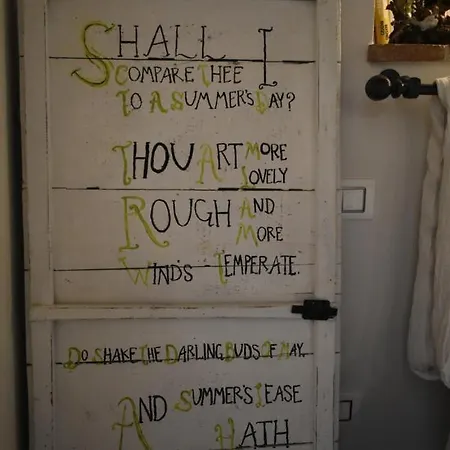 SHALL I
COMPARE THEE
TO A SUMMER'S DAY?
THOU ART MORE
LOVELY
ROUGH AND
MORE
WINDS TEMPERATE.
DO SHAKE THE DARLING BUDS OF MAY,
AND SUMMER'S LEASE
HATH